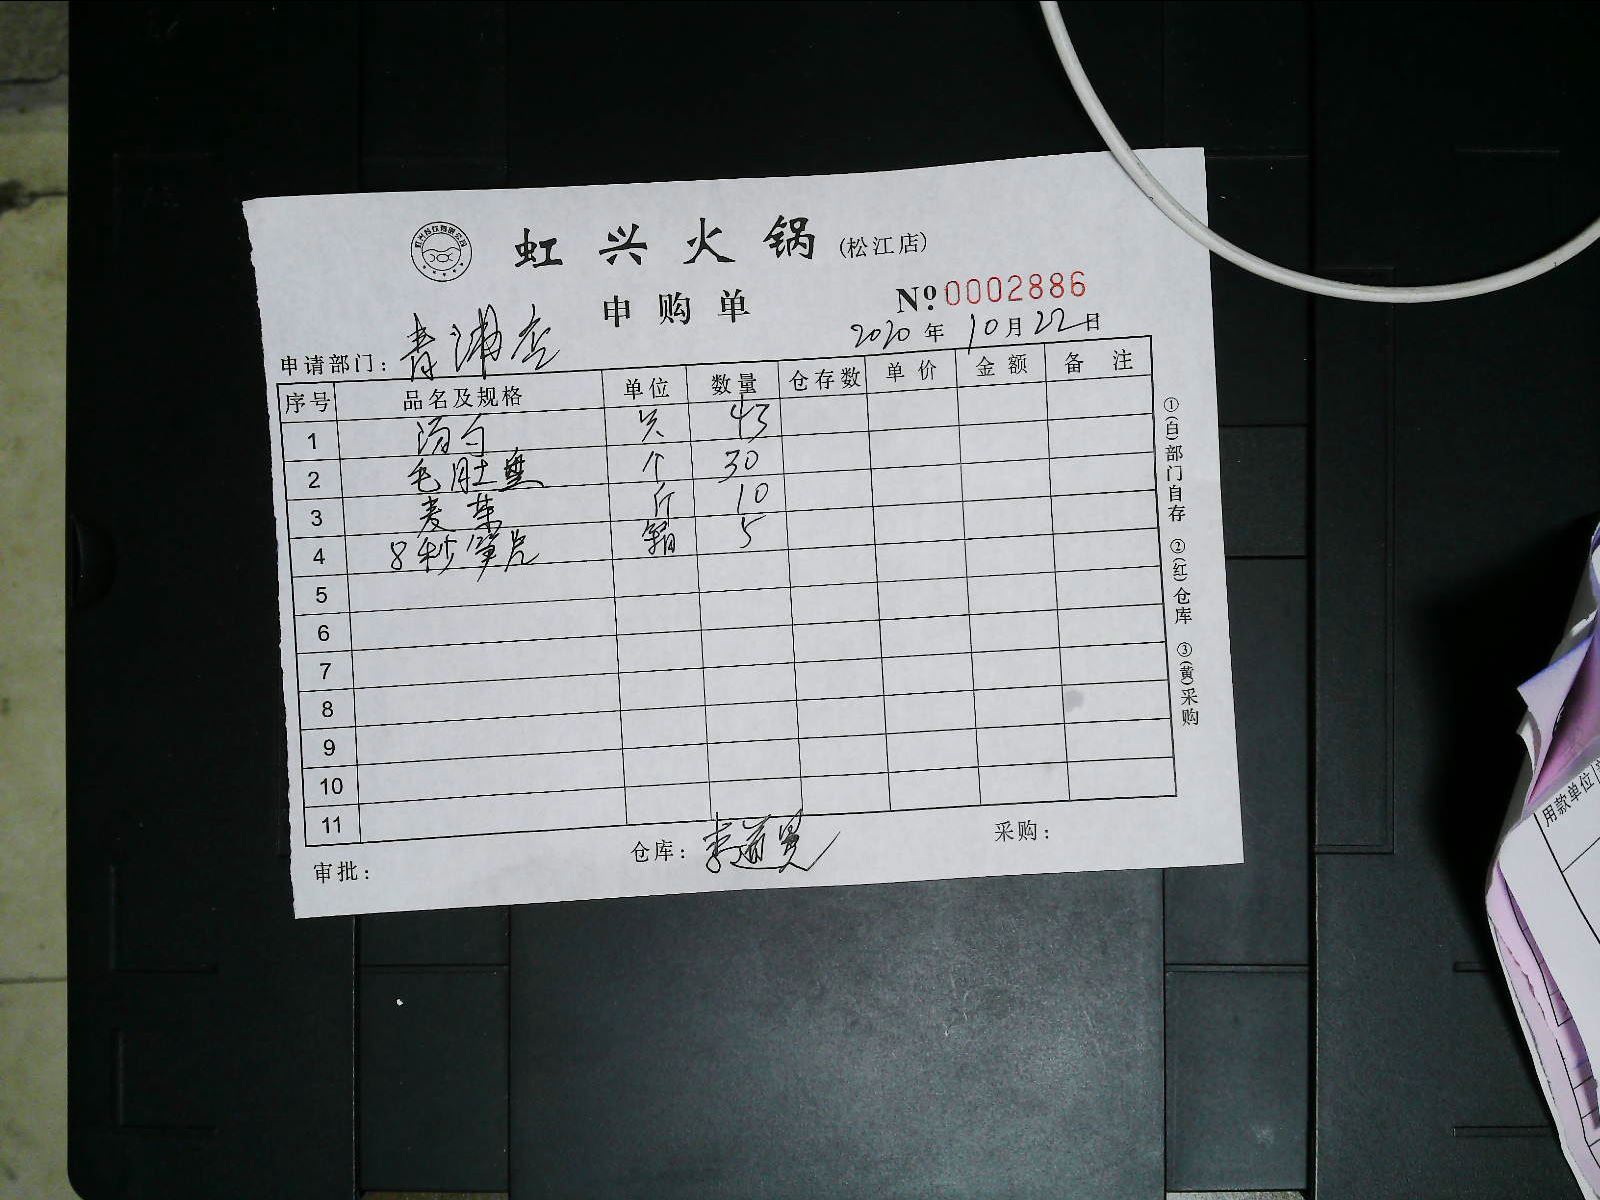 虹兴火锅(松江店)
申购单
Nº 0002886
2020年10月22日
申请部门：青浦店
序号 品名及规格 单位 数量 仓存数 单价 金额 备注
1 汤勺 只 43
2 毛肚盘 个 30
3 麦芽 斤 10
4 8秒 箱 5
5
6
7
8
9
10
11
审批： 仓库：李道 采购：
①(白)部门自存 ②(红)仓库 ③(黄)采购
用款单位